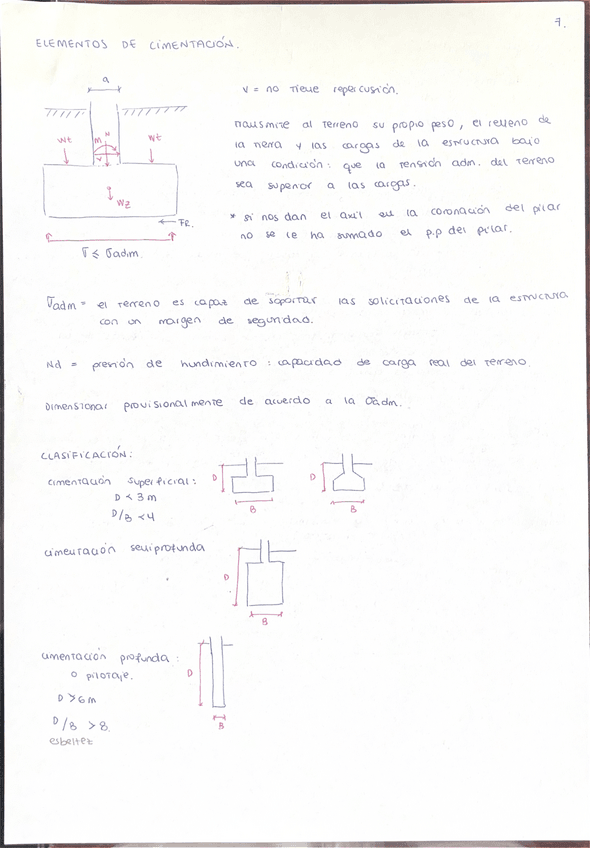 7.
ELEMENTOS DE CIMENTACIÓN.
a
V = no tiene repercusión.
Wt M N Wt
V
transmite al terreno su propio peso, el relleno de
la tierra y las cargas de la estructura bajo
una condición: que la tensión adm. del terreno
sea superior a las cargas.
Wz
FR.
* si nos dan el axil en la coronación del pilar
no se le ha sumado el p.p del pilar.
σ ≤ σadm.
σadm = el terreno es capaz de soportar las solicitaciones de la estructura
con un margen de seguridad.
Nd = presión de hundimiento: capacidad de carga real del terreno.
Dimensionar provisionalmente de acuerdo a la σadm.
CLASIFICACIÓN:
cimentación superficial:
D < 3 m
D/B < 4
D B
D B
cimentación semiprofunda
D
B
cimentación profunda:
o pilotaje.
D > 6m
D/B > 8.
esbeltez
D
B